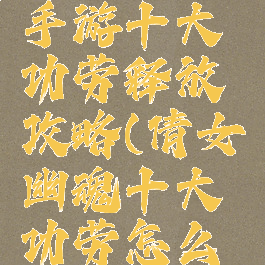 手游十大
功劳释放
攻略(倩女
幽魂十大
功劳怎么